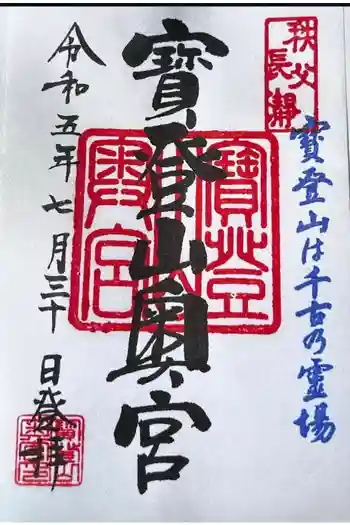 秩父
長瀞
寶登山は千古の霊場
寶登山奥宮
寶登
山
奥宮
令和五年七月三十日登拝